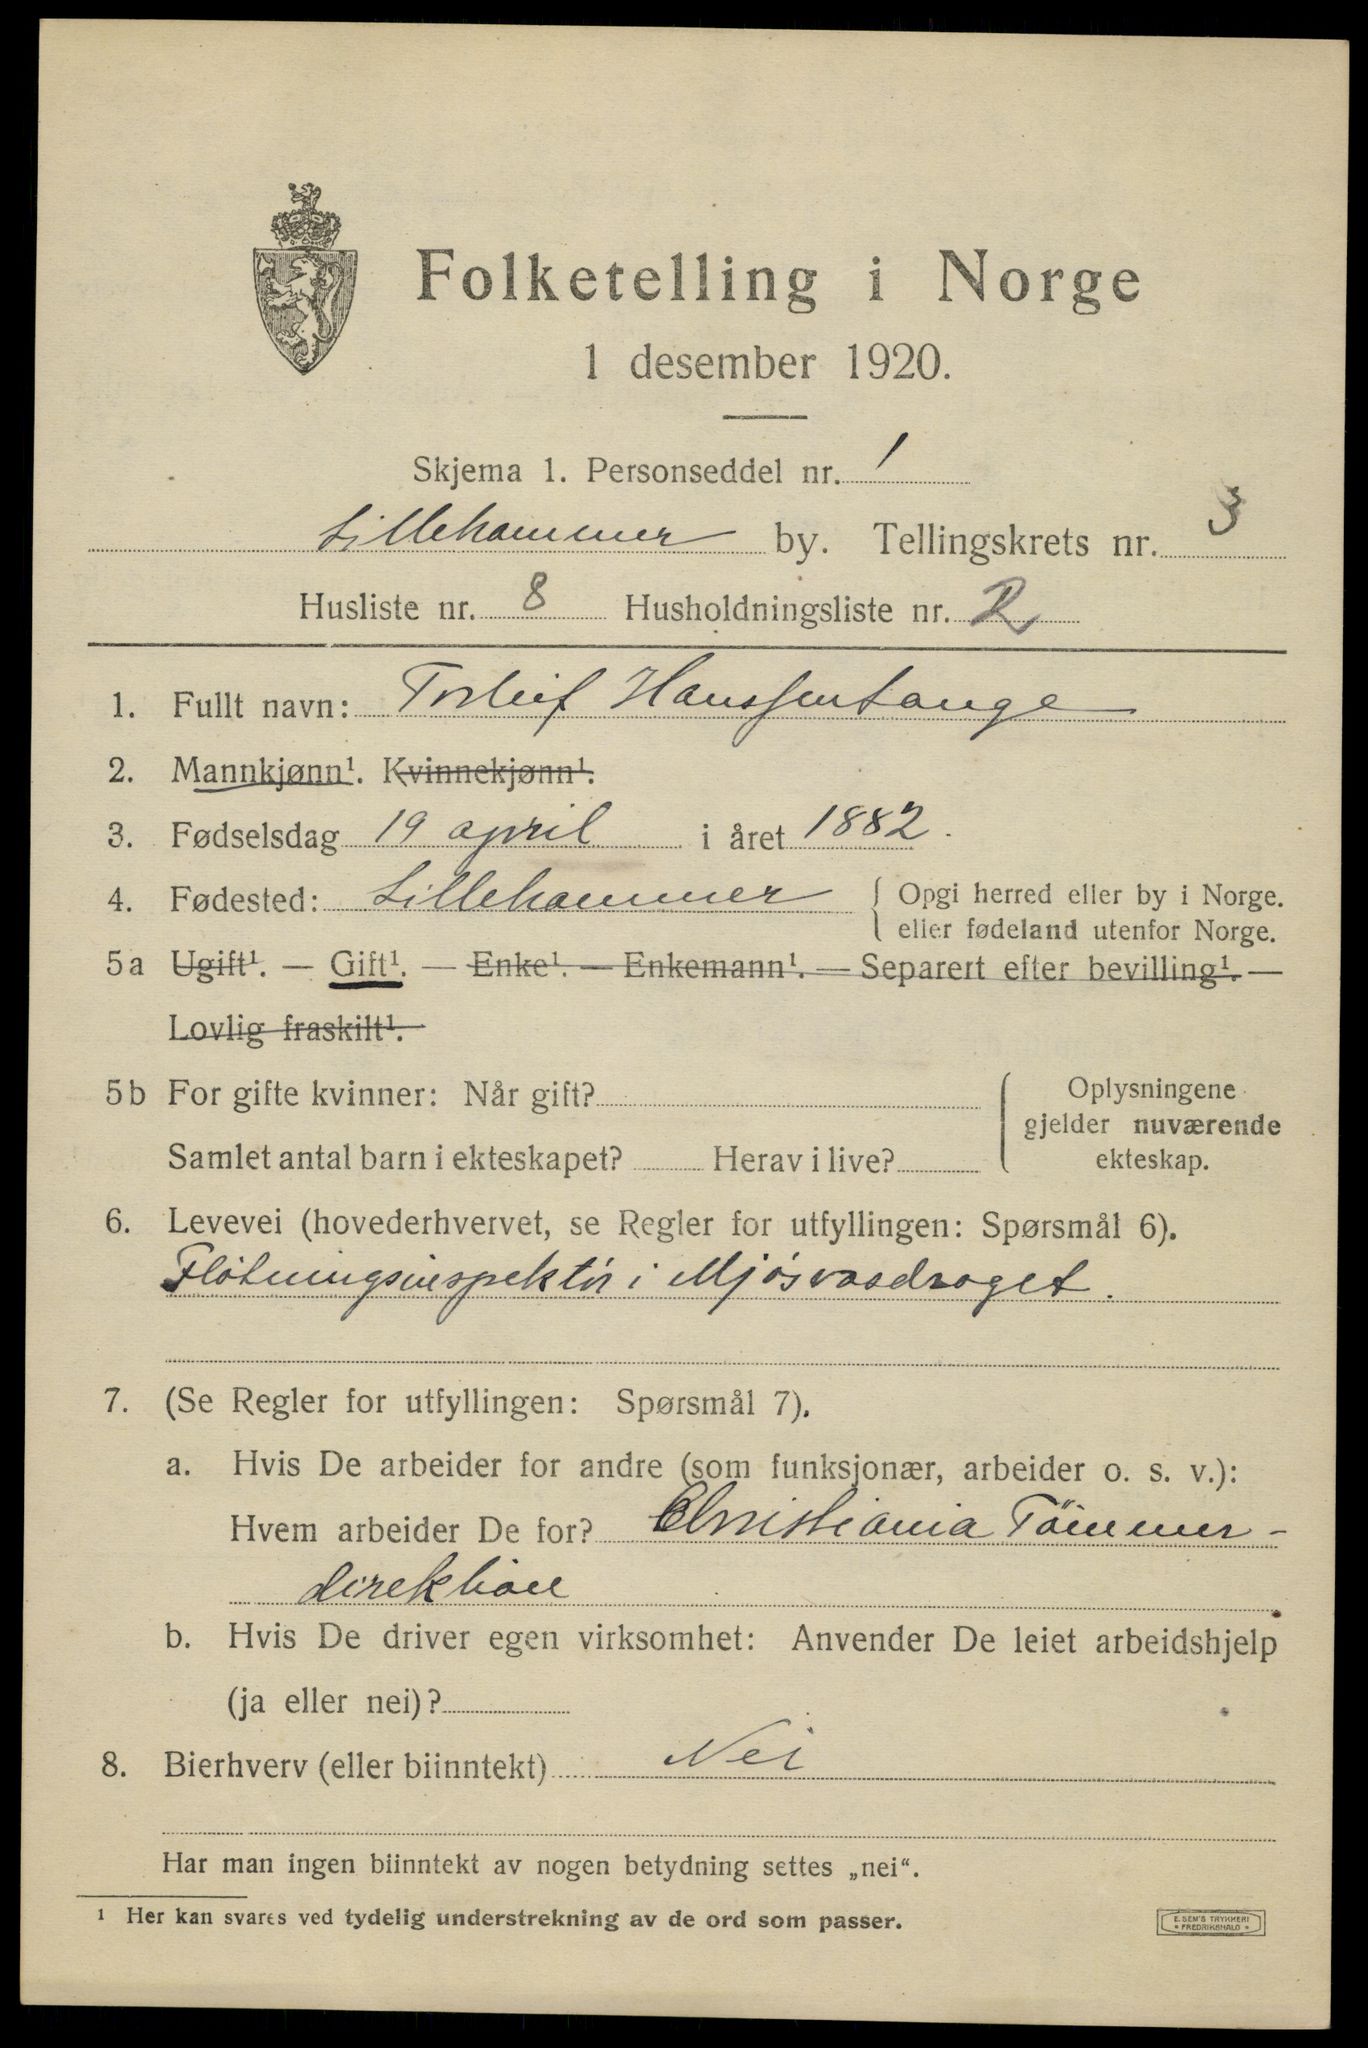 Folketelling i Norge
1 desember 1920.
Skjema 1. Personseddel nr. 1
Lillehammer by. Tellingskrets nr. 3
Husliste nr. 8 Husholdningsliste nr. 2
1. Fullt navn: Torleif Hanssen Lange
2. Mannkjønn¹. Kvinnekjønn¹.
3. Fødselsdag 19 april i året 1882.
4. Fødested: Lillehammer { Opgi herred eller by i Norge.
eller fødeland utenfor Norge.
5a Ugift¹. — Gift¹. — Enke¹. — Enkemann¹. — Separert efter bevilling¹. —
Lovlig fraskilt¹.
5b For gifte kvinner: Når gift?
Samlet antal barn i ekteskapet? Herav i live?
Oplysningene
gjelder nuværende
ekteskap.
6. Levevei (hovederhvervet, se Regler for utfyllingen: Spørsmål 6).
Fløtningsinspektør i Mjøsvasdraget.
7. (Se Regler for utfyllingen: Spørsmål 7).
a. Hvis De arbeider for andre (som funksjonær, arbeider o. s. v.):
Hvem arbeider De for? Christiania Tömmer-
direktion
b. Hvis De driver egen virksomhet: Anvender De leiet arbeidshjelp
(ja eller nei)?
8. Bierhverv (eller biinntekt) Nei
Har man ingen biinntekt av nogen betydning settes „nei“.
¹ Her kan svares ved tydelig understrekning av de ord som passer.
E. SEM'S TRYKKERI
* FREDRIKSHALD *